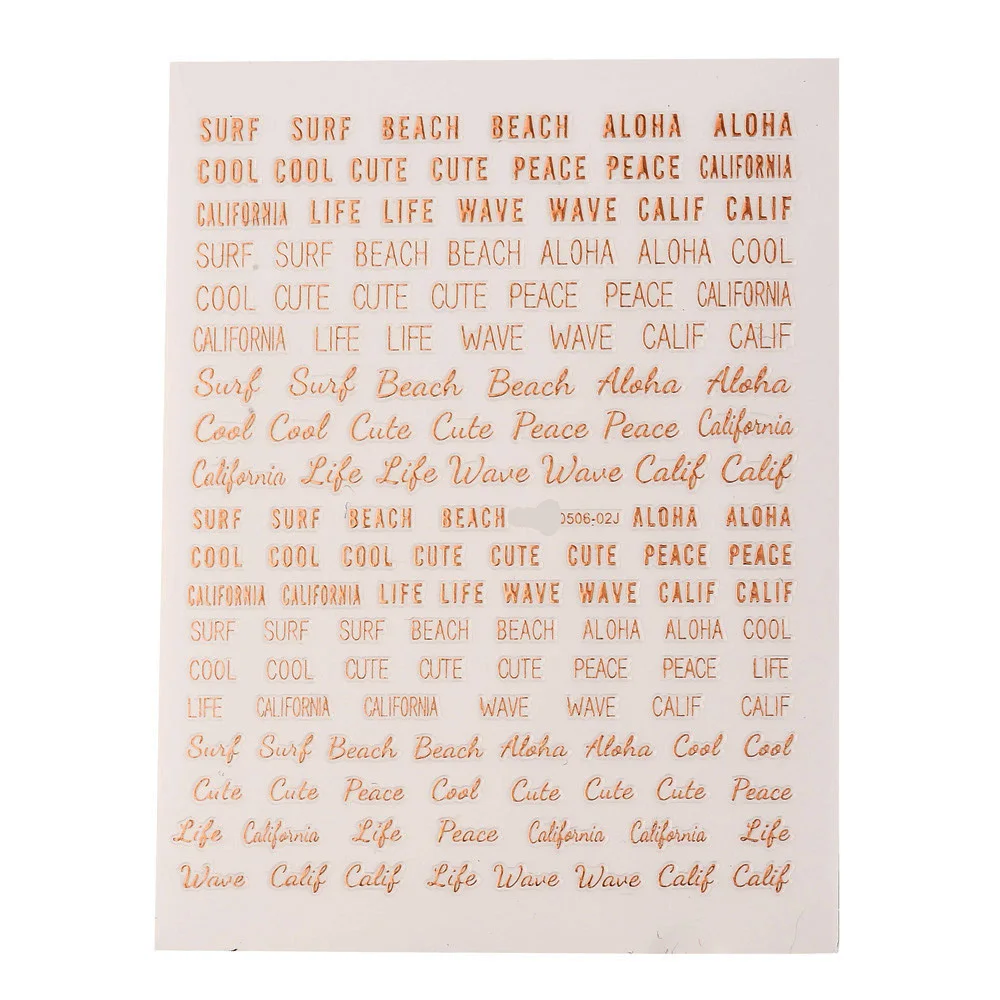 SURF SURF BEACH BEACH ALOHA ALOHA
COOL COOL CUTE CUTE PEACE PEACE CALIFORNIA
CALIFORNIA LIFE LIFE WAVE WAVE CALIF CALIF
SURF SURF BEACH BEACH ALOHA ALOHA COOL
COOL CUTE CUTE CUTE PEACE PEACE CALIFORNIA
CALIFORNIA LIFE LIFE WAVE WAVE CALIF CALIF
Surf Surf Beach Beach Aloha Aloha
Cool Cool Cute Cute Peace Peace California
California Life Life Wave Wave Calif Calif
SURF SURF BEACH BEACH 0506-02J ALOHA ALOHA
COOL COOL COOL CUTE CUTE CUTE PEACE PEACE
CALIFORNIA CALIFORNIA LIFE LIFE WAVE WAVE CALIF CALIF
SURF SURF SURF BEACH BEACH ALOHA ALOHA COOL
COOL COOL CUTE CUTE CUTE PEACE PEACE LIFE
LIFE CALIFORNIA CALIFORNIA WAVE WAVE CALIF CALIF
Surf Surf Beach Beach Aloha Aloha Cool Cool
Cute Cute Peace Cool Cute Cute Cute Peace
Life California Life Peace California California Life
Wave Calif Calif Life Wave Wave Calif Calif